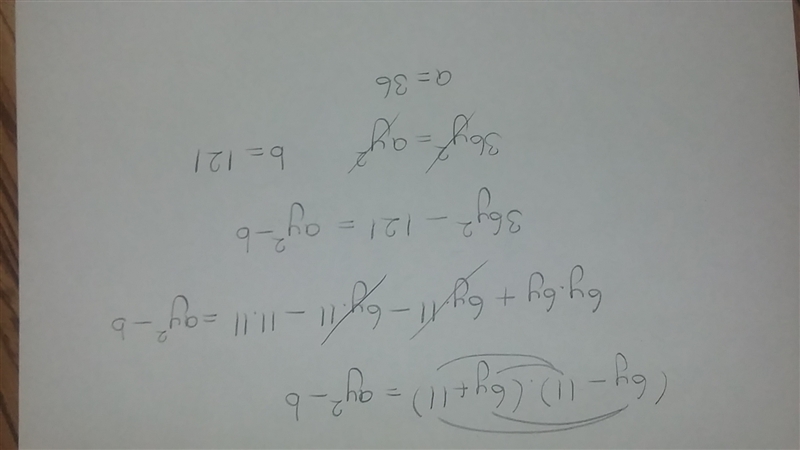 (6y - 11).(6y + 11) = ay² - b
6y.6y + 6y.11 - 6y.11 - 11.11 = ay² - b
36y² - 121 = ay² - b
36y² = ay² b = 121
a = 36